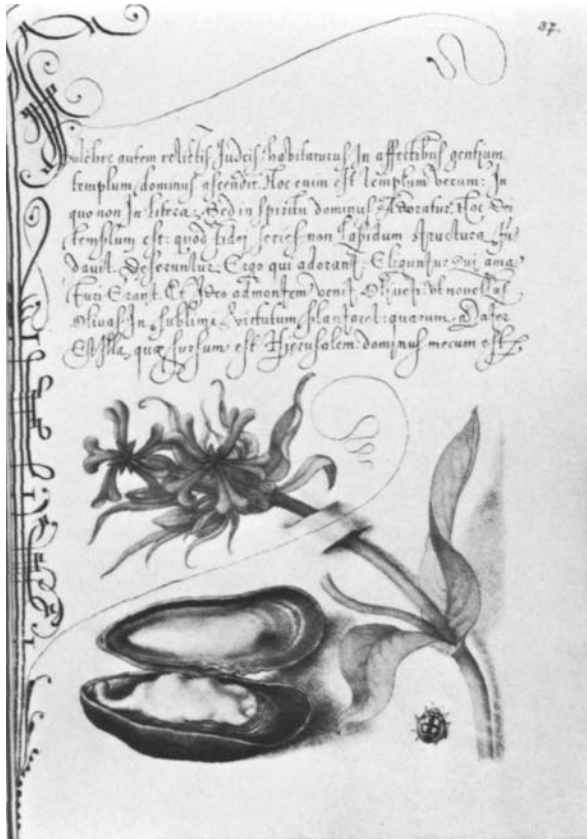 37.
autem relictis Judeis: habitaturus In affectibus gentium.
templum dominus ascendit. Hoc enim est templum verum: In
quo non In litera: Sed in spiritu dominus Adoratur. Hoc Dei
templum est: quod fidei series, non lapidum structura fun
davit. Deseruntur Ergo qui adorant: Eliguntur qui ama
turi Erant. Et Ideo ad montem venit Oliveti: ut novellas
Olivas. In sublimi virtutum plantaret: quarum Mater
Est Illa, quæ sursum est Hierusalem. dominus mecum est.